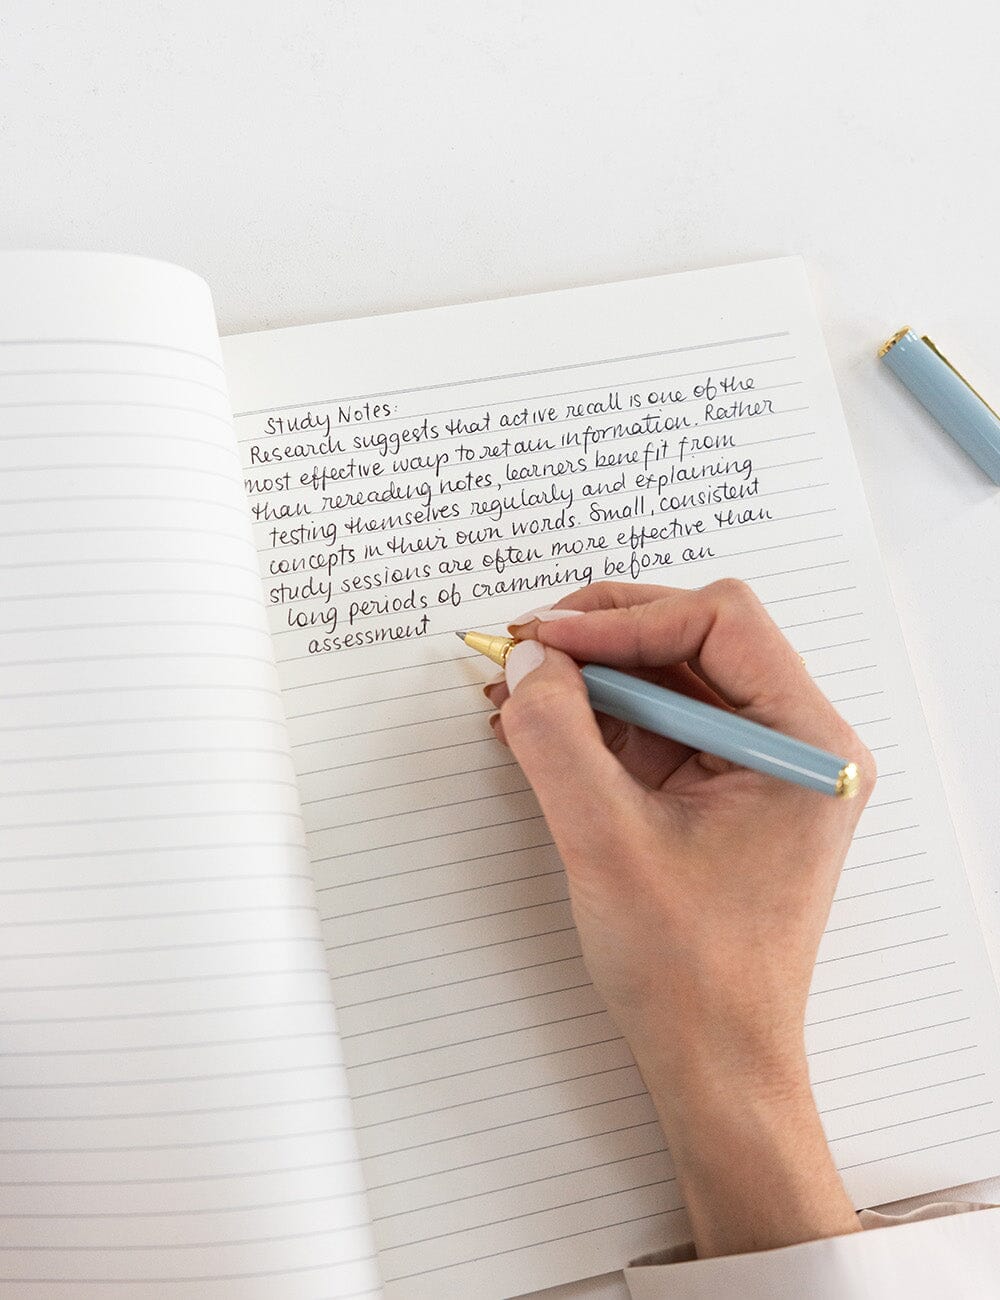 Study Notes:
Research suggests that active recall is one of the
most effective ways to retain information. Rather
than rereading notes, learners benefit from
testing themselves regularly and explaining
concepts in their own words. Small, consistent
study sessions are often more effective than
long periods of cramming before an
assessment